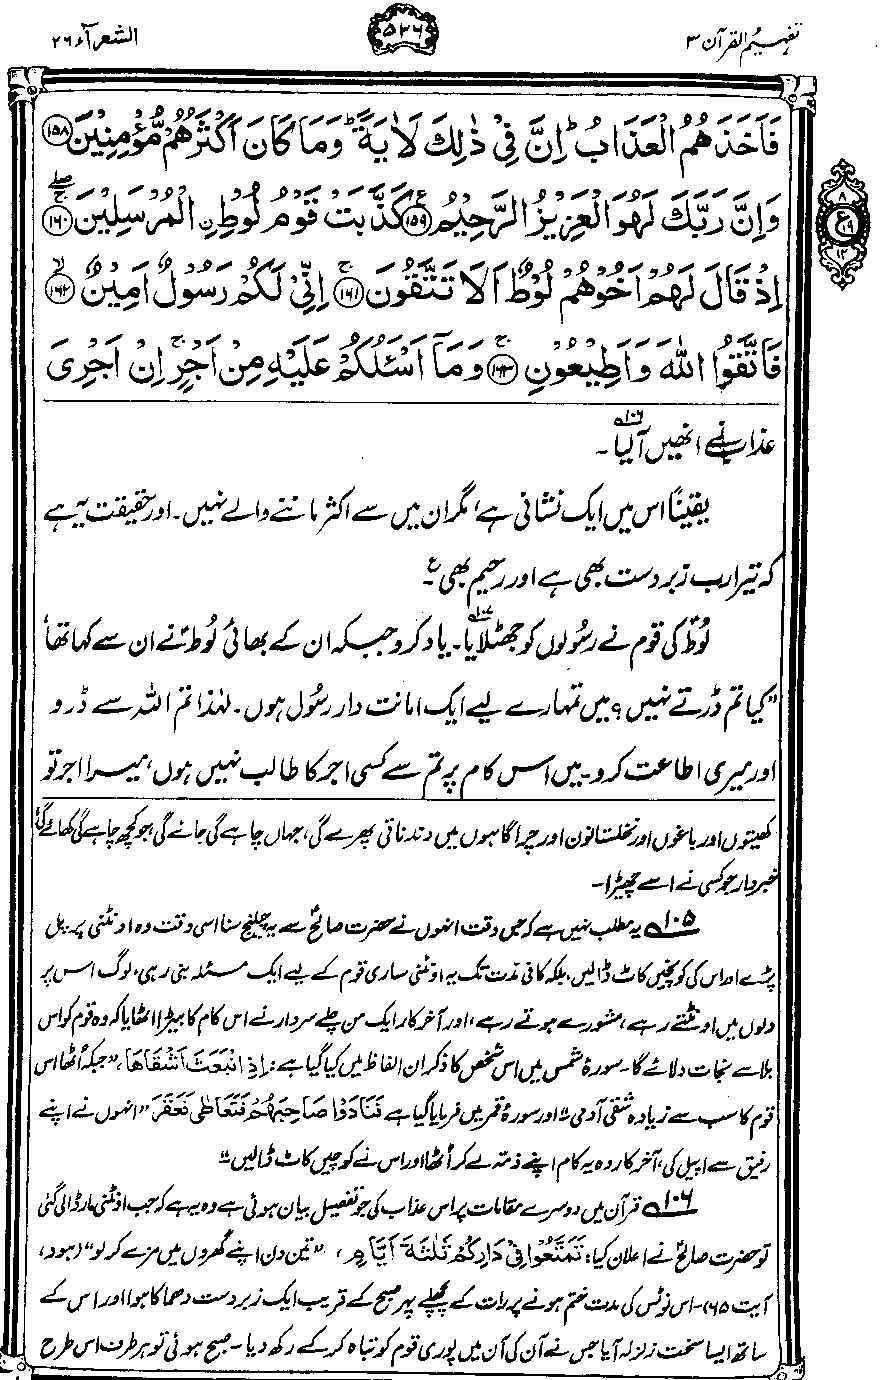 تفہیم القرآن ۳
۵۲۶
الشعرآء ۲۶
فَاَخَذَهُمُ الْعَذَابُ ؕ اِنَّ فِیْ ذٰلِكَ لَاٰیَةً ؕ وَمَا كَانَ اَكْثَرُهُمْ مُّؤْمِنِیْنَ ﴿۱۵۸﴾
وَاِنَّ رَبَّكَ لَهُوَ الْعَزِیْزُ الرَّحِیْمُ ﴿۱۵۹﴾ كَذَّبَتْ قَوْمُ لُوْطِ ۨ الْمُرْسَلِیْنَ ﴿۱۶۰﴾
اِذْ قَالَ لَهُمْ اَخُوْهُمْ لُوْطٌ اَلَا تَتَّقُوْنَ ﴿۱۶۱﴾ اِنِّیْ لَكُمْ رَسُوْلٌ اَمِیْنٌ ﴿۱۶۲﴾
فَاتَّقُوا اللّٰهَ وَاَطِیْعُوْنِ ﴿۱۶۳﴾ وَمَاۤ اَسْـَٔلُكُمْ عَلَیْهِ مِنْ اَجْرٍ ۚ اِنْ اَجْرِیَ
۸
ع
۱۹
۱۲
عذاب نے انھیں آلیا ۱۰۶۔
یقیناً اس میں ایک نشانی ہے، مگر ان میں سے اکثر ماننے والے نہیں۔ اور حقیقت یہ ہے
کہ تیرا رب زبردست بھی ہے اور رحیم بھی۔ ع
لوطؑ کی قوم نے رسولوں کو جھٹلایا ۱۰۷۔ یاد کرو جبکہ ان کے بھائی لوطؑ نے ان سے کہا تھا،
”کیا تم ڈرتے نہیں؟ میں تمہارے لیے ایک امانت دار رسول ہوں۔ لہٰذا تم اللہ سے ڈرو
اور میری اطاعت کرو۔ میں اس کام پر تم سے کسی اجر کا طالب نہیں ہوں، میرا اجر تو
کھیتوں اور باغوں اور نخلستانوں اور چراگاہوں میں دندناتی پھرے گی، جہاں چاہے گی جائے گی، جو کچھ چاہے گی کھائے گی،
خبردار جو کسی نے اسے چھیڑا۔
۱۰۵ یہ مطلب نہیں ہے کہ جس وقت انہوں نے حضرت صالحؑ سے یہ چیلنج سنا اسی وقت وہ اونٹنی پر پل
پڑے اور اس کی کونچیں کاٹ ڈالیں، بلکہ کافی مدت تک یہ اونٹنی ساری قوم کے لیے ایک مسئلہ بنی رہی، لوگ اس پر
دلوں میں اونٹتے رہے، مشورے ہوتے رہے، اور آخر کار ایک من چلے سردار نے اس کام کا بیڑا اٹھایا کہ وہ قوم کو اس
بلا سے نجات دلائے گا۔ سورۂ شمس میں اس شخص کا ذکر ان الفاظ میں کیا گیا ہے: اِذِ انْۢبَعَثَ اَشْقَاهَا، ”جبکہ اُٹھا اس
قوم کا سب سے زیادہ شقی آدمی“ اور سورۂ قمر میں فرمایا گیا ہے فَنَادَوْا صَاحِبَهُمْ فَتَعَاطٰی فَعَقَرَ ”انہوں نے اپنے
رفیق سے اپیل کی، آخر کار وہ یہ کام اپنے ذمہ لے کر اُٹھا اور اس نے کوچیں کاٹ ڈالیں“
۱۰۶ قرآن میں دوسرے مقامات پر اس عذاب کی جو تفصیل بیان ہوئی ہے وہ یہ ہے کہ جب اونٹنی مار ڈالی گئی
تو حضرت صالحؑ نے اعلان کیا: تَمَتَّعُوْا فِیْ دَارِكُمْ ثَلٰثَةَ اَیَّامٍ، ”تین دن اپنے گھروں میں مزے کر لو“ (ہود،
آیت ۶۵)۔ اس نوٹس کی مدت ختم ہونے پر رات کے پچھلے پہر صبح کے قریب ایک زبردست دھماکا ہوا اور اس کے
ساتھ ایسا سخت زلزلہ آیا جس نے آن کی آن میں پوری قوم کو تباہ کر کے رکھ دیا۔ صبح ہوئی تو ہر طرف اس طرح